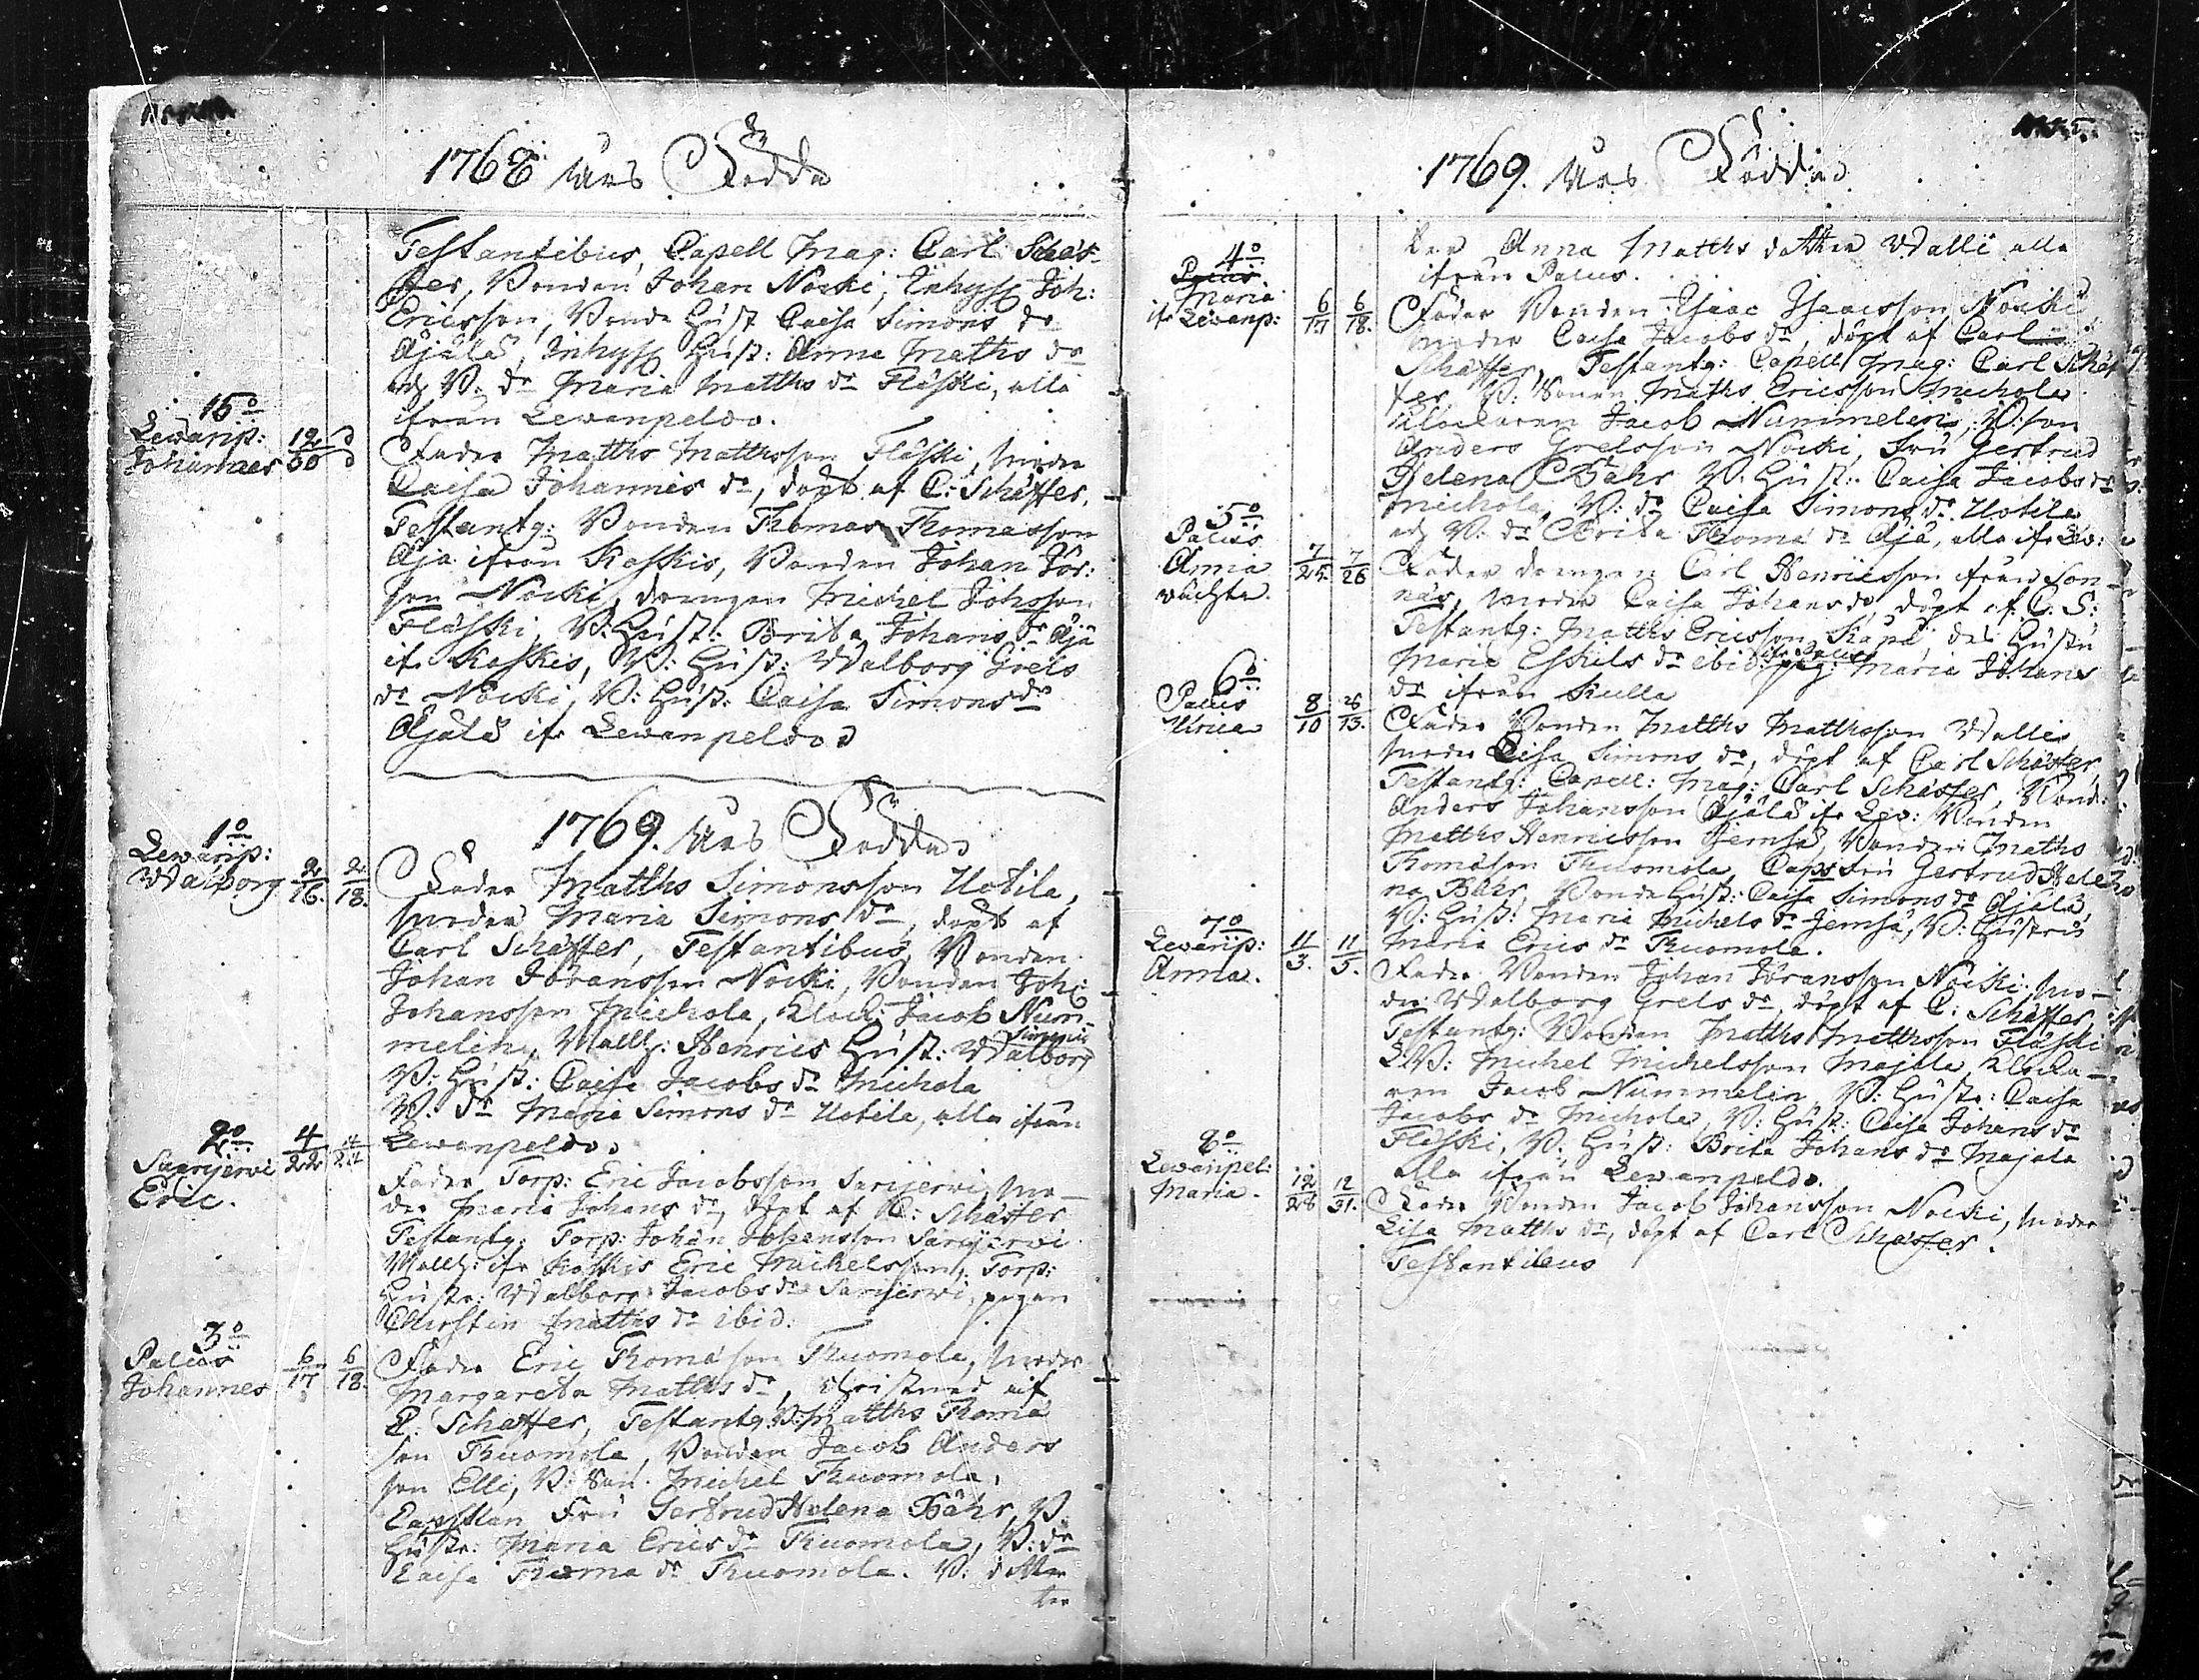 1768 Års Födde
Testantibus, Capell Mag: Carl Schäf-
fer, Bonden Johan Nocki, Inhyss Joh:
Ericsson, Bonde Hust Caisa Simons dr
Äjälä, Inhyss Hust: Anna Matths dr
och B: dr Maria Matths dr Fläski, alla
ifrån Lewanpeldo.
15o
Lewanp:
Johannes 12/30
Fader Matths Matthsson Fläski, Moder
Caisa Johannis dr, döpt af C: Schäffer,
Testantg: Bonden Thomas Thomasson
Äja ifrån Koskis, Bonden Johan Jör:
son Nocki, drengen Michel Johsson
Fläski, B: Hust: Brita Johans dr Äjä
ifr Koskis, B: Hust: Walborg Grels
dr Nocki, B: Hust: Caisa Simons dr
Äjälä ifr Lewanpeldo
1769. Års Födde
1o
Lewanp:
Walborg 2/16. 2/18.
Fader Matths Simonsson Uotila,
Moder Maria Simons dr, döpt af
Carl Schäffer, Testantibus, Bonden
Johan Jöransson Nocki, Bonden Joh:
Johansson Michola, Klock: Jacob Num-
melin, Henrics Hust: Walborg Simons
B: Hust: Caisa Jacobs dr Michola
B: dr Maria Simons dr Uotila, alla ifrån
Lewanpeldo
2o
Saarijerwi
Eric. 4/22
Fader Torp: Eric Jacobsson Sarijerwi, Mo-
der Maria Johans dr, döpt af C: Schäffer
Testantg: Torp: Johan Johansson Sarijerwi
ifr Koskis Eric Michelsson, Torp:
Hustr: Walborg Jacobs dr Sarijerwi, pigan
Christin Matths dr ibid:
3o
Palus
Johannes 6/17 6/18.
Fader Eric Thomason Thuomola, Moder
Margareta Matths dr, Christnad aif
C. Schäffer, Testantg: B: Matths Thoma
son Thuomola, Bonden Jacob Anders
son Elli, B: Son. Michel Thuomola,
Capellan Fru Gertrud Helena Bähr, B.
Hustr: Maria Erics dr Thuomola, B: dr
Caisa Thoma dr Thuomola. B: dotter
ter
1769. Års Födde
Anna Matths dotter Walli alla
ifrån Palus.
4o
Palus
Maria
ifr Lewanp: 6/17 6/18.
Fader Bonden Isaac Isacsson Nocki
Moder Caisa Jacobs dr, döpt af Carl
Schäffer, Testantg: Capell Mag: Carl Schäf
fer B: Sonen Maths Ericsson Michola
Klockaren Jacob Nummelin, B: son
Anders Grelsson Nocki, Fru Gertrud
Helena Bähr B: Hust: Caisa Jacobs dr
Michola, B: dr Caisa Simons dr Uotila
och B: dr Brita Thoma dr Äjä, alla ifr Lew:
5o
Palus
Anna
oächta. 7/25 7/26
Fader drengen Carl Henricsson ifrån Son-
näs, Moder Caisa Johans dr, döpt af C. S:
Testantg: Matths Ericsson Kapa, dess Hustru
Maria Eskils dr ibid: ifr Palus pig: Maria Johans
dr ifrån Kulla
6o
Palus
Ulrica 8/10 26/13.
Fader Bonden Matths Matthsson Walli
Moder Lisa Simons dr, döpt af Carl Schäffer
Testantg: Capell: Mag: Carl Schäffer, Bond:
Anders Johansson Äjälä ifr Lew: Bonden
Matths Henricsson Jemsä, Bonden Maths
Thomason Thuomola, Caps Fru Gertrud Hele
na Bähr, Bonde Hust: Caisa Simons dr Äjälä,
B: Hust: Maria Michels dr Jemsä, B: Hustru
Maria Erics dr Thuomola.
7o
Lewanp:
Anna. 11/3. 11/5.
Fader Bonden Johan Jöransson Nocki. Mo-
der Walborg Grels dr, döpt af C: Schäffer
Testantg: Bonden Matths Matthsson Fläski
B: Michel Michelsson Majala, Klocka-
ren Jacob Nummelin, B: Hustr: Caisa
Jacobs dr Michola, B: Hust: Caisa Johans dr
Fläski, B: Hust: Brita Johans dr Majala
alla ifrån Lewanpeldo.
8o
Lewanpel:
Maria. 12/28 12/31.
Fader Bonden Jacob Johansson Nocki, Moder
Lisa Matths dr, döpt af Carl Schäffer.
Testantibus